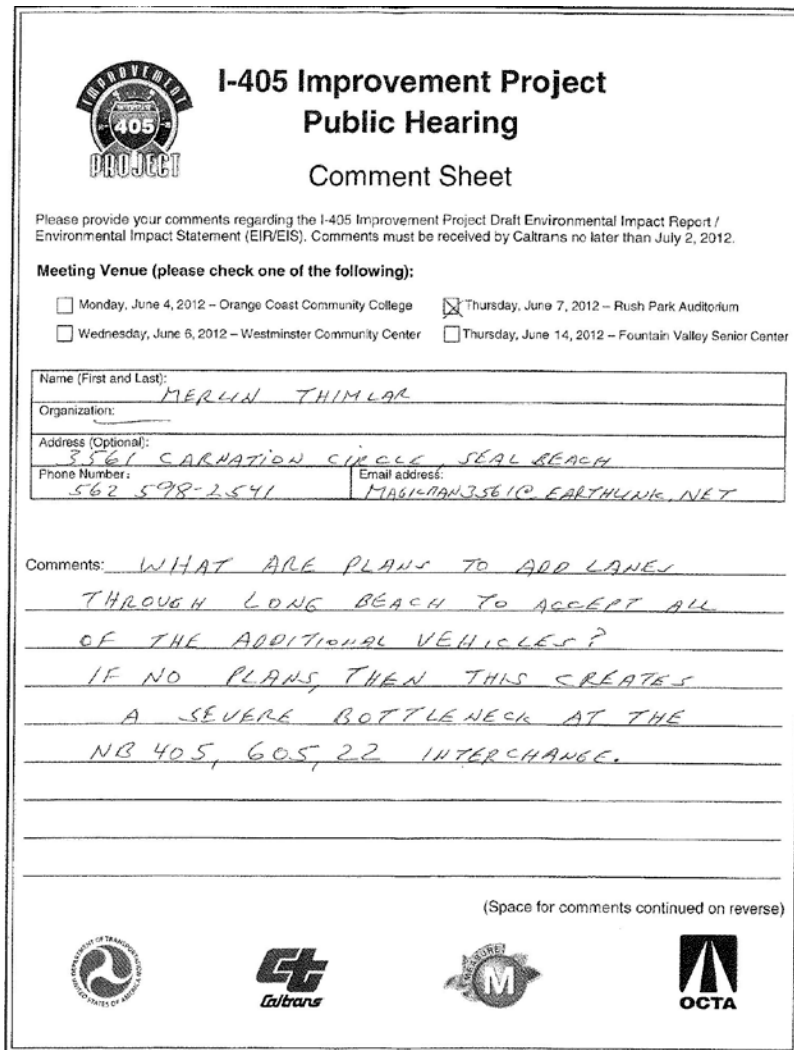 IMPROVEMENT
INTERSTATE
405
PROJECT
I-405 Improvement Project
Public Hearing
Comment Sheet
Please provide your comments regarding the I-405 Improvement Project Draft Environmental Impact Report /
Environmental Impact Statement (EIR/EIS). Comments must be received by Caltrans no later than July 2, 2012.
Meeting Venue (please check one of the following):
Monday, June 4, 2012 – Orange Coast Community College
Thursday, June 7, 2012 – Rush Park Auditorium
Wednesday, June 6, 2012 – Westminster Community Center
Thursday, June 14, 2012 – Fountain Valley Senior Center
Name (First and Last):
MERLIN THIMLAR
Organization:
Address (Optional):
3561 CARNATION CIRCLE, SEAL BEACH
Phone Number:
562 598-2541
Email address:
MAGICMAN3561@EARTHLINK.NET
Comments: WHAT ARE PLANS TO ADD LANES
THROUGH LONG BEACH TO ACCEPT ALL
OF THE ADDITIONAL VEHICLES?
IF NO PLANS, THEN THIS CREATES
A SEVERE BOTTLENECK AT THE
NB 405, 605, 22 INTERCHANGE.
(Space for comments continued on reverse)
DEPARTMENT OF TRANSPORTATION
UNITED STATES OF AMERICA
Ct
Caltrans
MEASURE
M
OCTA